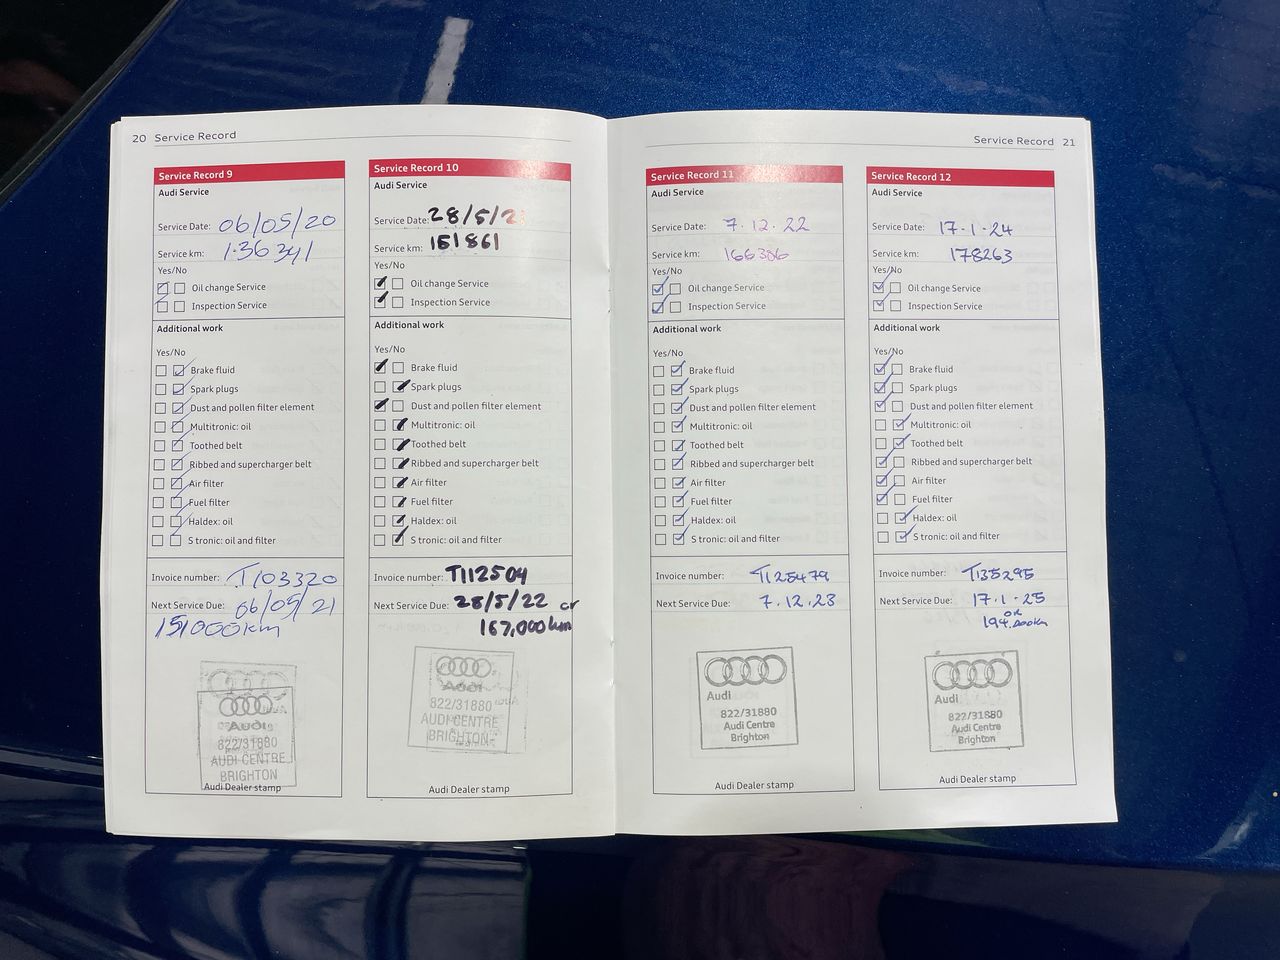 20 Service Record
Service Record 9
Audi Service
Service Date: 06/05/20
Service km: 136341
Yes/No
Oil change Service
Inspection Service
Additional work
Yes/No
Brake fluid
Spark plugs
Dust and pollen filter element
Multitronic: oil
Toothed belt
Ribbed and supercharger belt
Air filter
Fuel filter
Haldex: oil
S tronic: oil and filter
Invoice number: T103320
Next Service Due: 06/05/21
151000km
822/31880
AUDI CENTRE
BRIGHTON
Audi Dealer stamp
Service Record 10
Audi Service
Service Date: 28/5/2
Service km: 151861
Yes/No
Oil change Service
Inspection Service
Additional work
Yes/No
Brake fluid
Spark plugs
Dust and pollen filter element
Multitronic: oil
Toothed belt
Ribbed and supercharger belt
Air filter
Fuel filter
Haldex: oil
S tronic: oil and filter
Invoice number: T112504
Next Service Due: 28/5/22 or
167,000km
822/31880
AUDI CENTRE
BRIGHTON
Audi Dealer stamp
Service Record 21
Service Record 11
Audi Service
Service Date: 7.12.22
Service km: 166386
Yes/No
Oil change Service
Inspection Service
Additional work
Yes/No
Brake fluid
Spark plugs
Dust and pollen filter element
Multitronic: oil
Toothed belt
Ribbed and supercharger belt
Air filter
Fuel filter
Haldex: oil
S tronic: oil and filter
Invoice number: T125479
Next Service Due: 7.12.23
Audi
822/31880
Audi Centre
Brighton
Audi Dealer stamp
Service Record 12
Audi Service
Service Date: 17.1.24
Service km: 178263
Yes/No
Oil change Service
Inspection Service
Additional work
Yes/No
Brake fluid
Spark plugs
Dust and pollen filter element
Multitronic: oil
Toothed belt
Ribbed and supercharger belt
Air filter
Fuel filter
Haldex: oil
S tronic: oil and filter
Invoice number: T135295
Next Service Due: 17.1.25
OR
194.000km
Audi
822/31880
Audi Centre
Brighton
Audi Dealer stamp